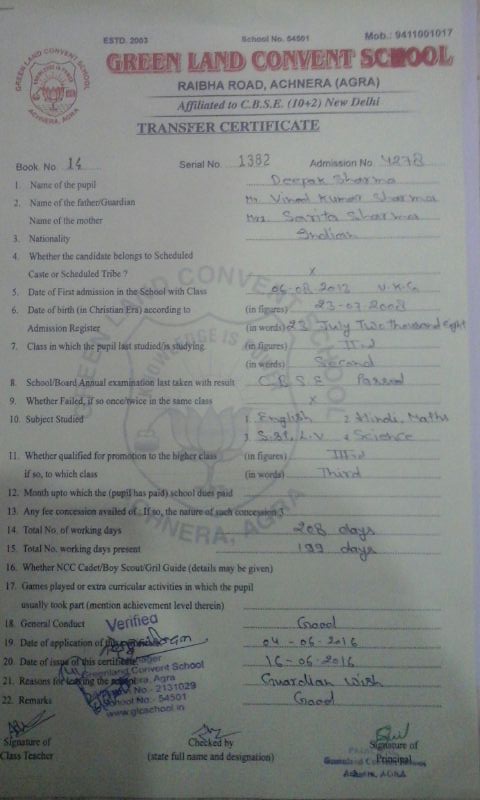 ESTD. 2003 School No. 54501 Mob.: 9411001017
GREEN LAND CONVENT SCHOOL
GREEN LAND CONVENT SCHOOL
ACHNERA, AGRA
RAIBHA ROAD, ACHNERA (AGRA)
Affiliated to C.B.S.E. (10+2) New Delhi
TRANSFER CERTIFICATE
Book No. 14 Serial No. 1382 Admission No. 4278
1. Name of the pupil Deepak Sharma
2. Name of the father/Guardian Mr. Vinod Kumar Sharma
Name of the mother Mrs. Sarita Sharma
3. Nationality Indian
4. Whether the candidate belongs to Scheduled
Caste or Scheduled Tribe ? x
5. Date of First admission in the School with Class 06-08-2012 U.K.G.
6. Date of birth (in Christian Era) according to (in figures) 23-07-2008
Admission Register (in words) 23 July Two thousand Eight
7. Class in which the pupil last studied/is studying (in figures)
(in words) Second
8. School/Board Annual examination last taken with result C.B.S.E Passed
9. Whether Failed, if so once/twice in the same class x
10. Subject Studied 1. English 2. Hindi, Maths
3. S.St., 4. Science
11. Whether qualified for promotion to the higher class (in figures)
if so, to which class (in words) Third
12. Month upto which the (pupil has paid) school dues paid
13. Any fee concession availed of : If so, the nature of such concession ?
14. Total No. of working days 208 days
15. Total No. of working days present 199 days
16. Whether NCC Cadet/Boy Scout/Gril Guide (details may be given)
17. Games played or extra curricular activities in which the pupil
usually took part (mention achievement level therein)
18. General Conduct Good
Verified
19. Date of application of 04-06-2016
20. Date of issue of this certificate 16-06-2016
Manager
Greenland Convent School
21. Reasons for leaving the Guardian Wish
Achnera, Agra
No.- 2131029
22. Remarks Good
School No.- 54501
www.glcschool.in
Signature of Checked by Signature of
Class Teacher (state full name and designation) Principal
Greenland Convent School
Achnera, AGRA
GREEN LAND CONVENT SCHOOL
KNOWLEDGE IS
ACHNERA, AGRA